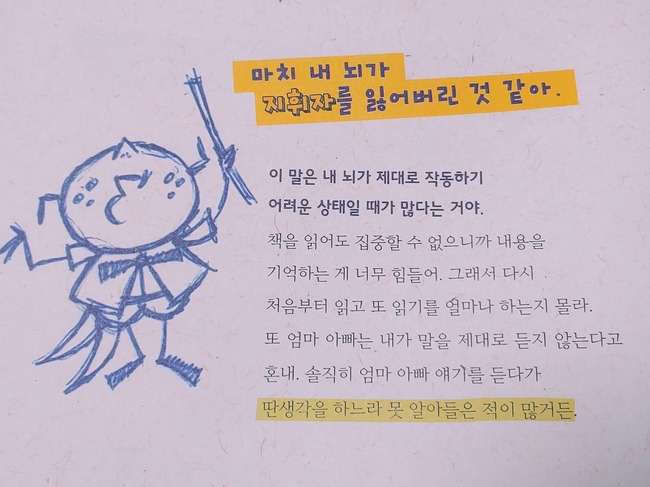 마치 내 뇌가
지휘자를 잃어버린 것 같아.
이 말은 내 뇌가 제대로 작동하기
어려운 상태일 때가 많다는 거야.
책을 읽어도 집중할 수 없으니까 내용을
기억하는 게 너무 힘들어. 그래서 다시
처음부터 읽고 또 읽기를 얼마나 하는지 몰라.
또 엄마 아빠는 내가 말을 제대로 듣지 않는다고
혼내. 솔직히 엄마 아빠 얘기를 듣다가
딴생각을 하느라 못 알아들은 적이 많거든.